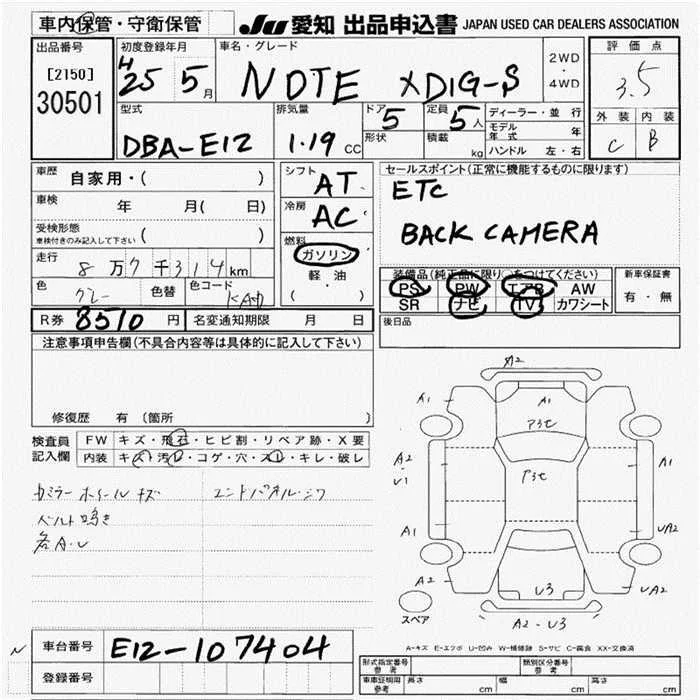 車内保管・守衛保管
JU 愛知 出品申込書 JAPAN USED CAR DEALERS ASSOCIATION
出品番号
[2150]
30501
初度登録年月
H25 5月
車名・グレード
NOTE X DIG-S
2WD
・
4WD
評価点
3.5
外装 内装
C B
型式
DBA-E12
排気量
1.19 CC
ドア 5
形状
定員 5人
積載 kg
ディーラー・並行
モデル年式 年
ハンドル 左・右
車歴 自家用・( )
車検 年 月( 日)
受検形態
車検付きのみ記入して下さい ( )
走行 8万7千314km
色 グレー 色替 色コード KAD
シフト AT
冷房 AC
燃料
ガソリン
軽・油
( )
セールスポイント(正常に機能するものに限ります)
ETC
BACK CAMERA
装備品(純正品に限り○をつけてください)
PS PW エアB AW
SR ナビ TV カワシート
新車保証書
有・無
R券 8510円 名変通知期限 月 日
後日品
注意事項申告欄(不具合内容等は具体的に記入して下さい)
修復歴 有(箇所 )
検査員
記入欄
FW キズ・飛石・ヒビ割・リペア跡・X要
内装 キズ・汚レ・コゲ・穴・スレ・キレ・破レ
ベルト鳴き
各A・U
A2
A1 A1
A2
U1
A1
A1 UA2
A2 U3 UA2
スペア
A2-U3
A-キズ E-エクボ U-凹み W-補修跡 S-サビ C-腐食 XX-交換済
N
車台番号 E12-107404
登録番号
形式指定番号
参考
類別区分番号
参考
車庫証明用
参考
長さ cm 幅 cm 高さ cm